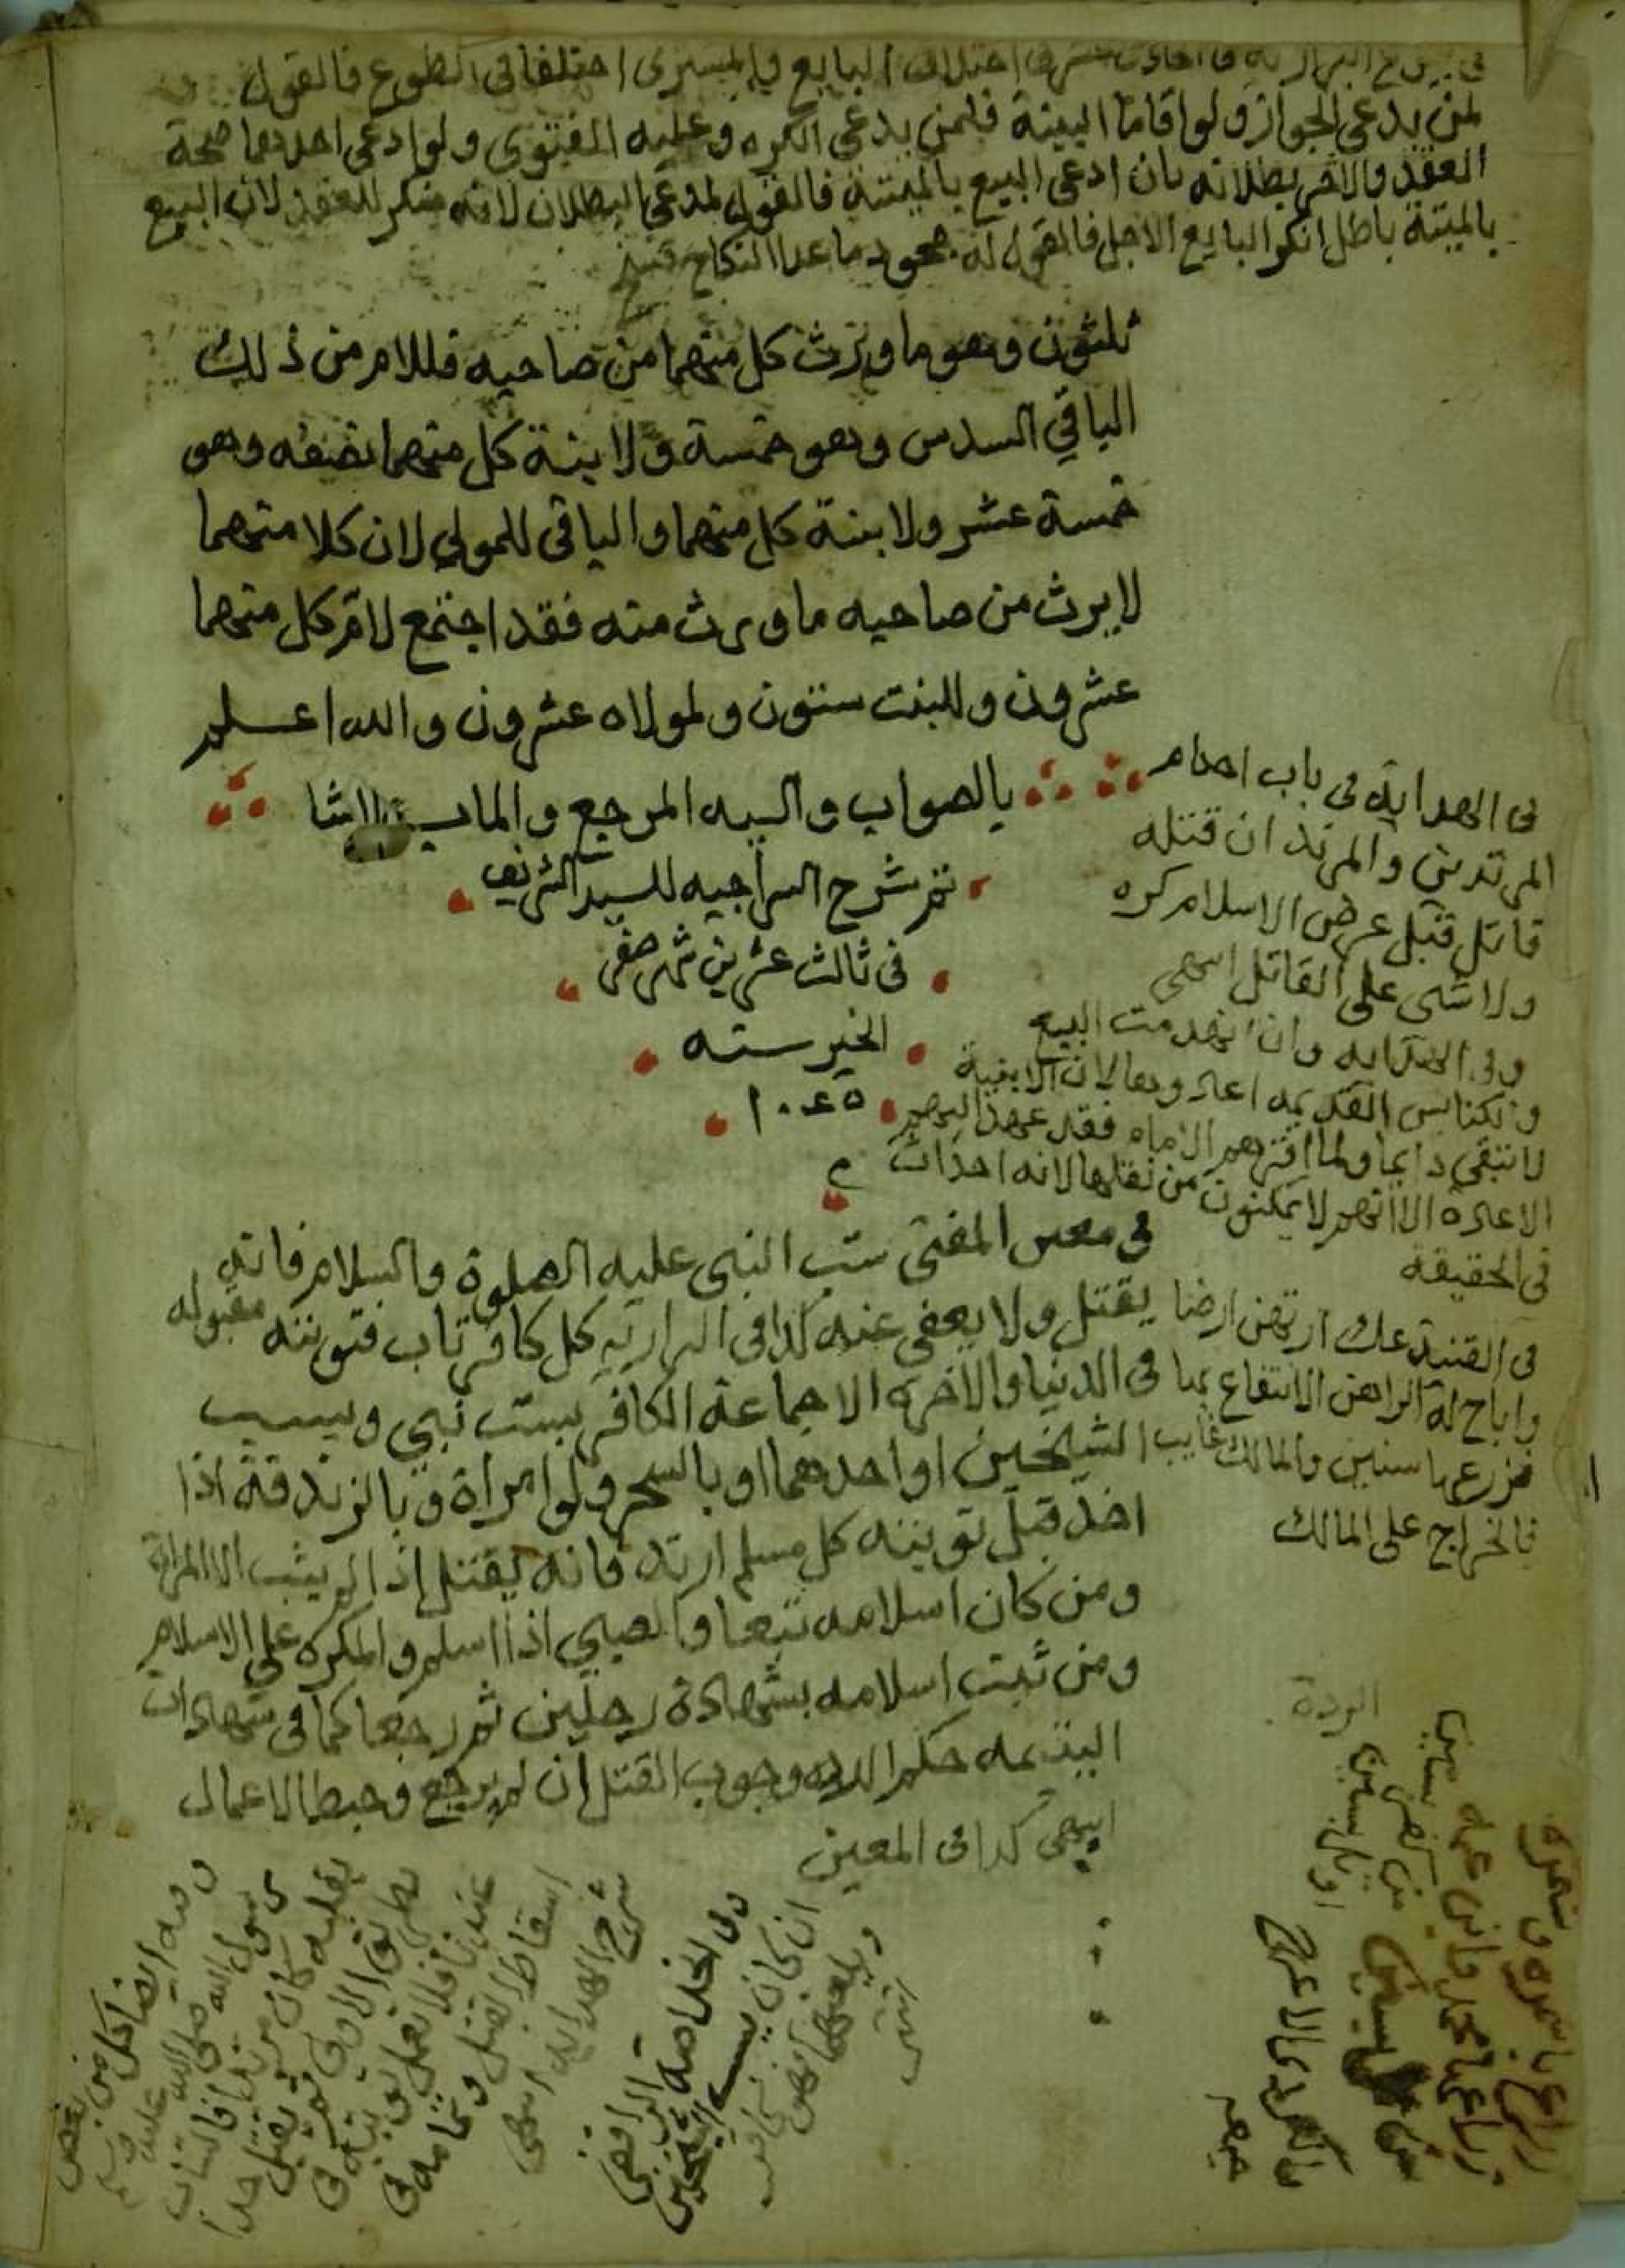 البايع والمشترى اختلفا فى الطوع فالقول
لمن يدعى الجواز ولو اقاما البينة فلمن يدعى الكره وعليه الفتوى ولو ادعى احدهما صحة
العقد والاخر بطلانه بان ادعى البيع بالميتة فالقول لمدعى البطلان لانه منكر للعقد لان البيع
بالميتة باطل انكر البايع الاجل فالقول له جحود ما عدا النكاح فسخ
ثلثون وهو ما ورث كل منهما من صاحبه فللام من ذلك
الباقي السدس وهو خمسة ولابنة كل منهما نصفه وهو
خمسة عشر ولابنة كل منهما والباقى للمولي لان كلا منهما
لا يرث من صاحبه ما ورث منه فقد اجتمع لام كل منهما
عشرون وللبنت ستون ولمولاه عشرون والله اعلم
بالصواب واليه المرجع والماب
تم شرح السراجيه للسيد الشريف
فى ثالث عشرين شهر صفر
الخير سنه
١٠٤٥
فى الهدايه فى باب احكام
المرتدين والمرتد ان قتله
قاتل قبل عرض الاسلام كره
ولا شى على القاتل انتهى
وفى الهدايه وان انهدمت البيع
والكنايس القديمه اعادوها لان الابنية
لا تبقى دايما ولما اقرهم الامام فقد عهد اليهم
الاعاده الا انهم لا يمكنون من نقلها لانه احداث
فى الحقيقه
فى معين المفتى سب النبى عليه الصلوة والسلام فانه
يقتل ولا يعفى عنه كذا فى البزازيه كل كافر تاب فتوبته مقبوله
فى الدنيا والاخره الا جماعة الكافر بسب نبي وبسب
الشيخين او احدهما او بالسحر ولو امراة وبالزندقة اذا
اخذ قبل توبته كل مسلم ارتد فانه يقتل اذا لم يتب الا المراة
ومن كان اسلامه تبعا والصبي اذا اسلم والمكره على الاسلام
ومن ثبت اسلامه بشهادة رجلين ثم رجعا كما فى شهادات
اليتيمه حكم الرده وجوب القتل ان لم يرجع وحبط الاعمال
انتهى كذا فى المعين
فى القنية عك ارتهن ارضا
واباح له الراهن الانتفاع بها
فزرعها سنين والمالك غايب
فالخراج على المالك
الردة
وفيه ايضا كل من بغض
رسول الله صلى الله عليه وسلم
بقلبه كان مرتدا فالساب
بطريق الاولى ثم يقتل حدا
عندنا فلا تعمل توبته فى
اسقاط القتل وتمامه فى
شرح الهدايه انتهى
وفى الخلاصه الرافضى
ان كان يسب الشيخين
ويلعنهما فهو كافر